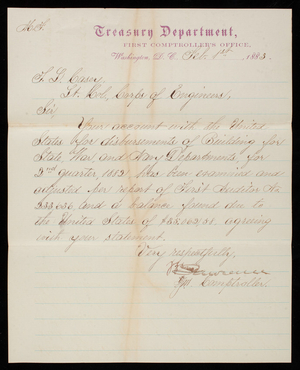 Treasury Department,
FIRST COMPTROLLER'S OFFICE,
Washington, D. C., Feb. 1st 1883.
T. L. Casey,
Lt. Col. Corps of Engineers,
Sir,
Your account with the United
States for disbursements of Building for
State, War and Navy Departments, for
2nd quarter, 1882 has been examined and
adjusted per report of First Auditor No.
and a balance found due to
the United States of agreeing
with your statement.
Very respectfully,
Comptroller